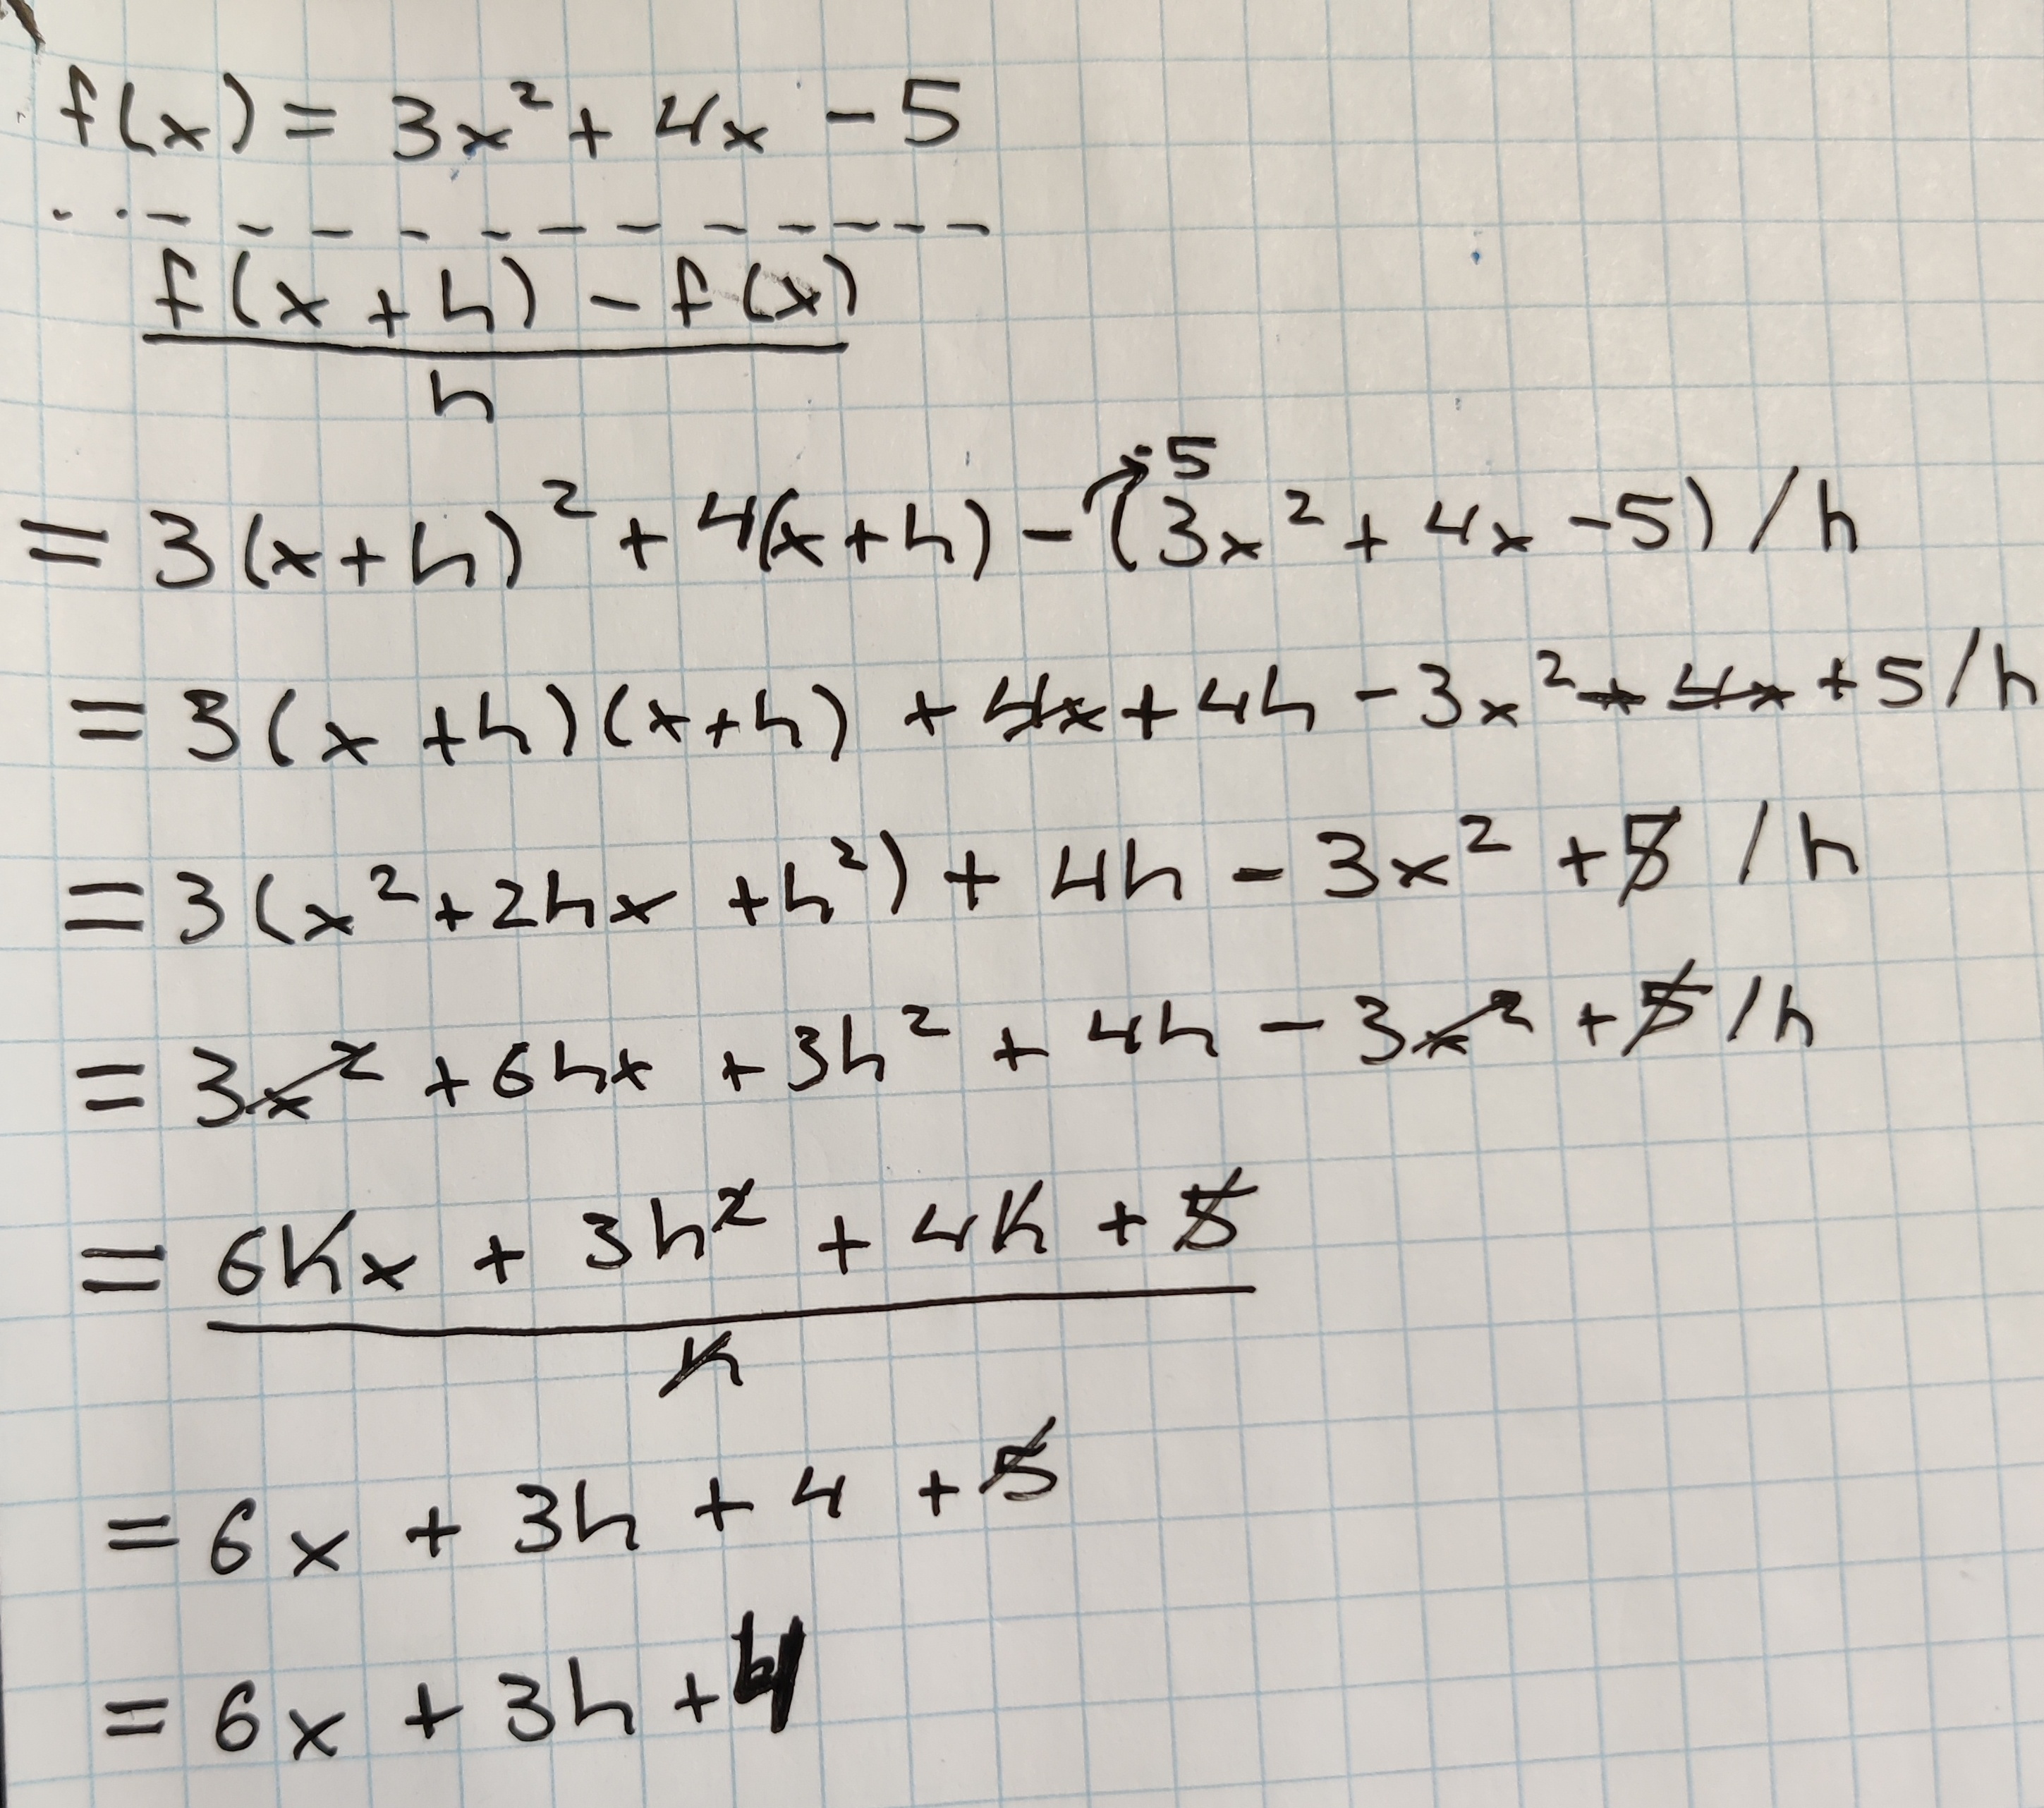 f(x) = 3x² + 4x - 5
f(x + h) - f(x)
h
-5
= 3(x + h)² + 4(x + h) - (3x² + 4x - 5) / h
= 3(x + h)(x + h) + 4x + 4h - 3x² + 4x + 5 / h
= 3(x² + 2hx + h²) + 4h - 3x² + 5 / h
= 3x² + 6hx + 3h² + 4h - 3x² + 5 / h
= 6hx + 3h² + 4h + 5
h
= 6x + 3h + 4 + 5
= 6x + 3h + 4